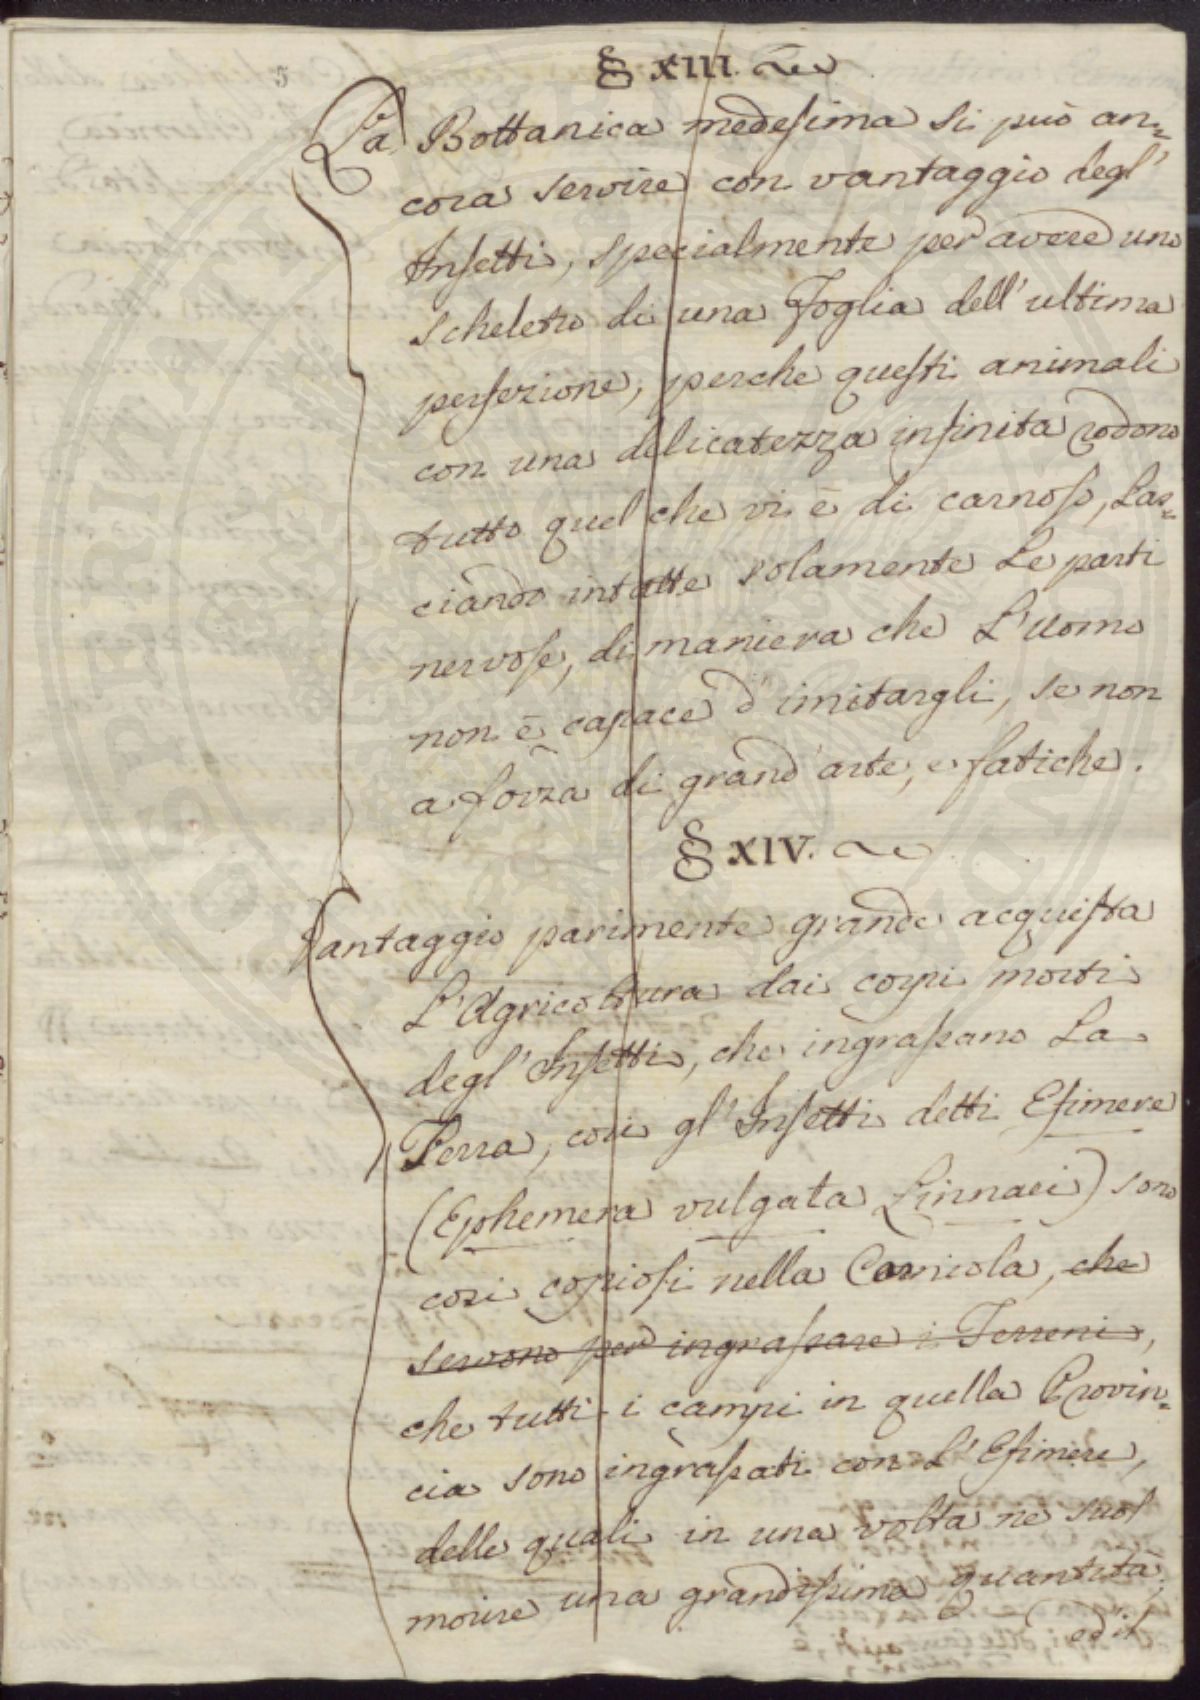 5
§ XIII.
La Bottanica medesima si può an=
cora servire con vantaggio degl'
Insetti, specialmente per avere uno
scheletro di una Foglia dell'ultima
perfezione, perche questi animali
con una delicatezza infinita rodono
tutto quel che vi è di carnoso, Las=
ciando intatte solamente Le parti
nervose, di maniera che L'uomo
non è capace d'imitargli, se non
a forza di grand'arte, e fatiche.
§ XIV.
Vantaggio parimente grande acquista
L'Agricoltura dai corpi morti
degl'Insetti, che ingrassano La
Terra, cosi gl'Insetti detti Efimere
(Ephemera vulgata Linnaei) sono
cosi copiosi nella Carniola, che
servono per ingrassare i Terreni,
che tutti i campi in quella Provin=
cia sono ingrassati con L'Efimere,
delle quali in una volta ne suol
morire una grandissima quantità,
ed il